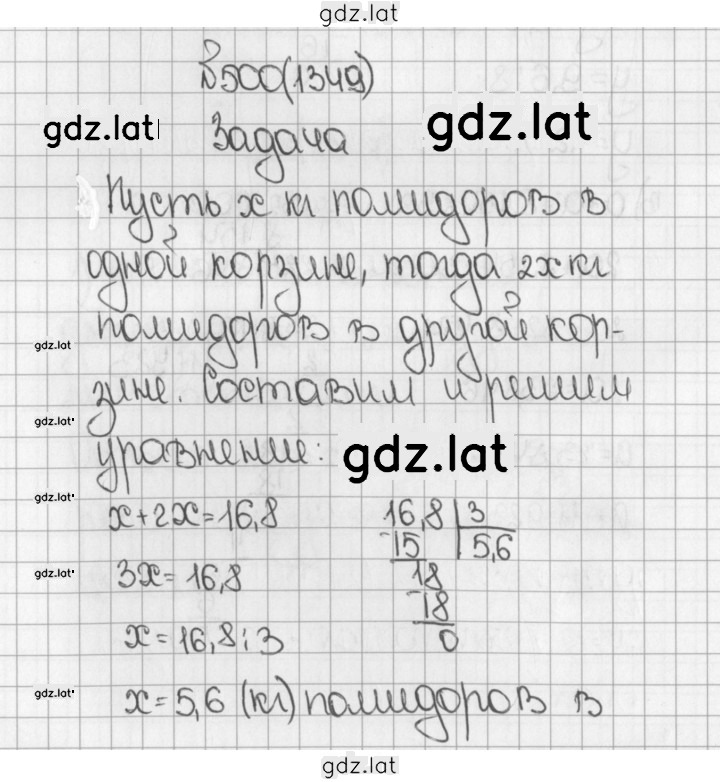 gdz.lat
№500(1349)
gdz.lat
gdz.lat
Задача
Пусть x кг помидоров в
одной корзине, тогда 2x кг
помидоров в другой кор-
gdz.lat
зине. Составим и решим
gdz.lat
уравнение:
gdz.lat
gdz.lat
x+2x=16,8
16,8 3
-15 5,6
3x=16,8
18
gdz.lat
-18
x=16,8:3
0
gdz.lat
x=5,6 (кг) помидоров в
gdz.lat